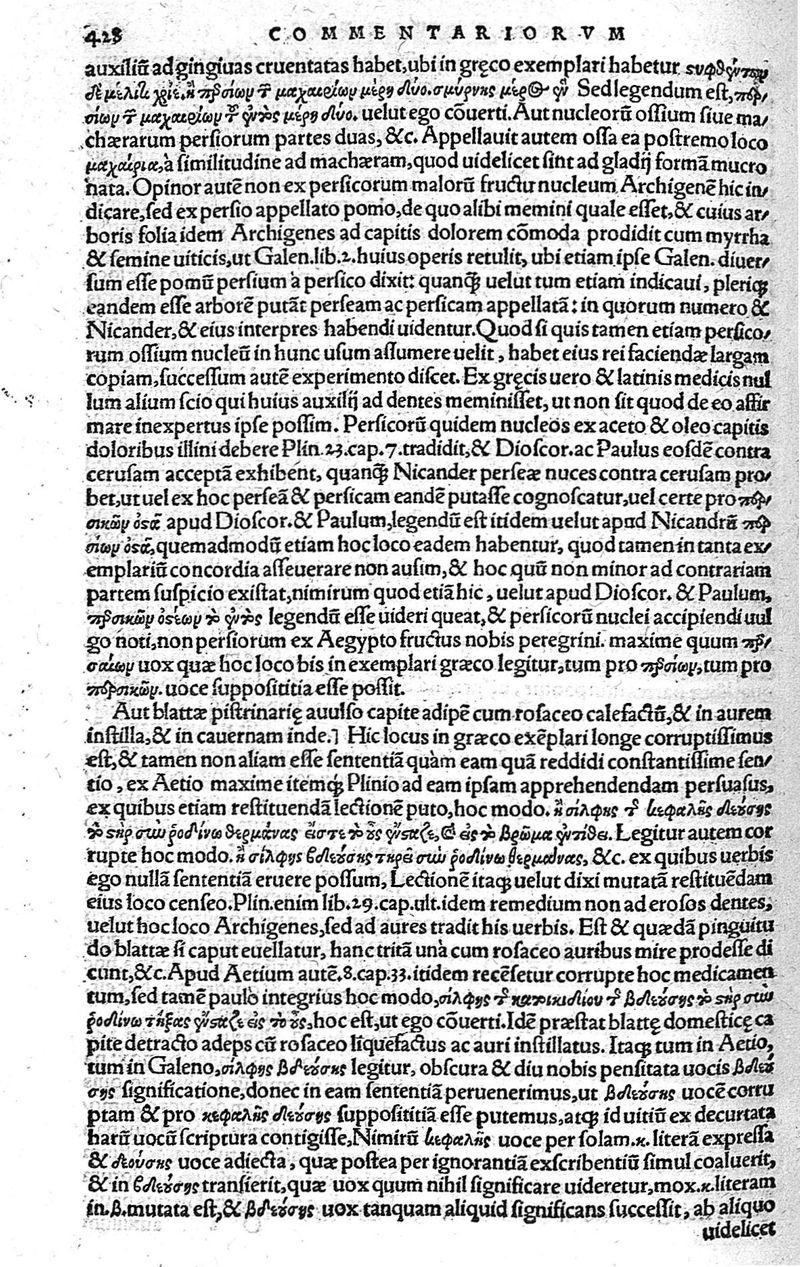 428 COMMENTARIORVM
auxiliũ ad gingiuas cruentatas habet, ubi in gręco exemplari habetur
δὲ μέλιτι χρίε, ἢ περσίων τ μαχαιρίων μέρη δύο. σμύρνης μέρ Sed legendum est, περ/
σίων τ μαχαιρίων τ ἐντὸς μέρη δύο. uelut ego cõuerti. Aut nucleorũ ossium siue ma/
chærarum persiorum partes duas, &c. Appellauit autem ossa ea postremo loco
μαχαίρια, à similitudine ad machæram, quod uidelicet sint ad gladij formã mucro
nata. Opinor autẽ non ex persicorum malorũ fructu nucleum Archigenẽ hic in/
dicare, sed ex persio appellato pomo, de quo alibi memini quale esset, & cuius ar/
boris folia idem Archigenes ad capitis dolorem cõmoda prodidit cum myrrha
& semine uiticis, ut Galen. lib. 2. huius operis retulit, ubi etiam ipse Galen. diuer/
sum esse pomũ persium à persico dixit: quanq̃ uelut tum etiam indicaui, pleriq;
eandem esse arborẽ putãt perseam ac persicam appellatã: in quorum numero &
Nicander, & eius interpres habendi uidentur. Quod si quis tamen etiam persico/
rum ossium nucleũ in hunc usum assumere uelit, habet eius rei faciendæ largam
copiam, successum autẽ experimento discet. Ex gręcis uero & latinis medicis nul
lum alium scio qui huius auxilij ad dentes meminisset, ut non sit quod de eo affir
mare inexpertus ipse possim. Persicorũ quidem nucleos ex aceto & oleo capitis
doloribus illini debere Plin. 23. cap. 7. tradidit, & Dioscor. ac Paulus eosdẽ contra
cerusam acceptã exhibent, quanq̃ Nicander perseæ nuces contra cerusam pro/
bet, ut uel ex hoc perseã & persicam eandẽ putasse cognoscatur, uel certe pro περ/
σικῶν ὀσᾶ apud Dioscor. & Paulum, legendũ est itidem uelut apud Nicandrũ περ
σίων ὀσᾶ, quemadmodũ etiam hoc loco eadem habentur, quod tamen in tanta ex/
emplariũ concordia asseuerare non ausim, & hoc qũ non minor ad contrariam
partem suspicio existat, nimirum quod etiã hic, uelut apud Dioscor. & Paulum,
περσικῶν ὀστέων τὸ ἐντὸς legendũ esse uideri queat, & persicorũ nuclei accipiendi uul
go noti, non persiorum ex Aegypto fructus nobis peregrini. maxime quum περ/
σαίων uox quæ hoc loco bis in exemplari græco legitur, tum pro περσίων, tum pro
περσικῶν. uoce supposititia esse possit.
Aut blattæ pistrinarię auulso capite adipẽ cum rosaceo calefactũ, & in aurem
instilla, & in cauernam inde.] Hic locus in græco exẽplari longe corruptissimus
est, & tamen non aliam esse sententiã quàm eam quã reddidi constantissime sen/
tio, ex Aetio maxime itemq; Plinio ad eam ipsam apprehendendam persuasus,
ex quibus etiam restituendã lectionẽ puto, hoc modo. ἢ σίλφης τ κεφαλῆς δεύσης
τὸ στὴρ σὺν ῥοδίνω θερμάνας εἰς τὸ οὖς ἔνσταζε, & εἰς τὸ βρῶμα ἐντίθει. Legitur autem cor
rupte hoc modo. ἢ σίλφης βδεύσης τηρε σὺν ῥοδίνω θερμαίνας, &c. ex quibus uerbis
ego nullã sententiã eruere possum, Lectionẽ itaq; uelut dixi mutatã restituẽdam
eius loco censeo. Plin. enim lib. 29. cap. ult. idem remedium non ad erosos dentes,
uelut hoc loco Archigenes, sed ad aures tradit his uerbis. Est & quædã pinguitu
do blattæ si caput euellatur, hanc tritã unà cum rosaceo auribus mire prodesse di
cunt, &c. Apud Aetium autẽ, 8. cap. 33. itidem recẽsetur corrupte hoc medicamen
tum, sed tamẽ paulo integrius hoc modo, σίλφης τ κατοικιδίου τ βδεύσης τὸ στὴρ σὺν
ῥοδίνω τήξας ἔνσταζε εἰς τὸ οὖς, hoc est, ut ego cõuerti. Idẽ præstat blattę domesticę ca
pite detracto adeps cũ rosaceo liquefactus ac auri instillatus. Itaq; tum in Aetio,
tum in Galeno, σίλφης βδεύσης legitur, obscura & diu nobis pensitata uocis βδεύ
σης significatione, donec in eam sententiã peruenerimus, ut βδεύσης uocẽ corru
ptam & pro κεφαλῆς δεύσης supposititiã esse putemus, atq; id uitiũ ex decurtata
harũ uocũ scriptura contigisse, Nimirũ κεφαλῆς uoce per solam .κ. literã expressa
& δεούσης uoce adiecta, quæ postea per ignorantiã exscribentiũ simul coaluerit,
& in κδεύσης transierit, quæ uox quum nihil significare uideretur, mox .κ. literam
in .β. mutata est, & βδεύσης uox tanquam aliquid significans successit, ab aliquo
uidelicet